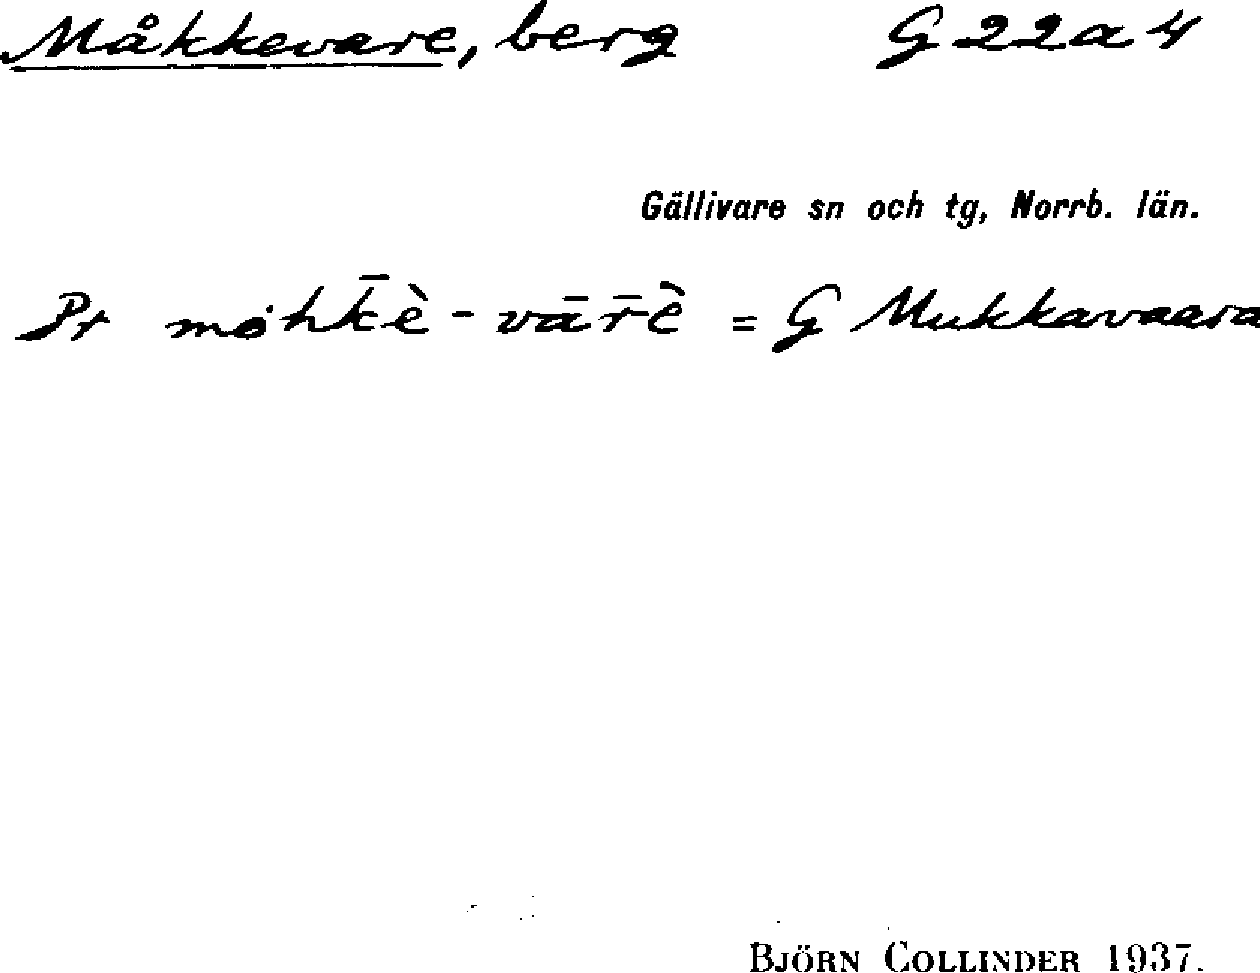 Måkkevare, berg G 22 a 4
Gällivare sn och tg, Norrb. län.
Pr mȯhk̄è - vār̄è = G Mukkavaara
BJÖRN COLLINDER 1937.